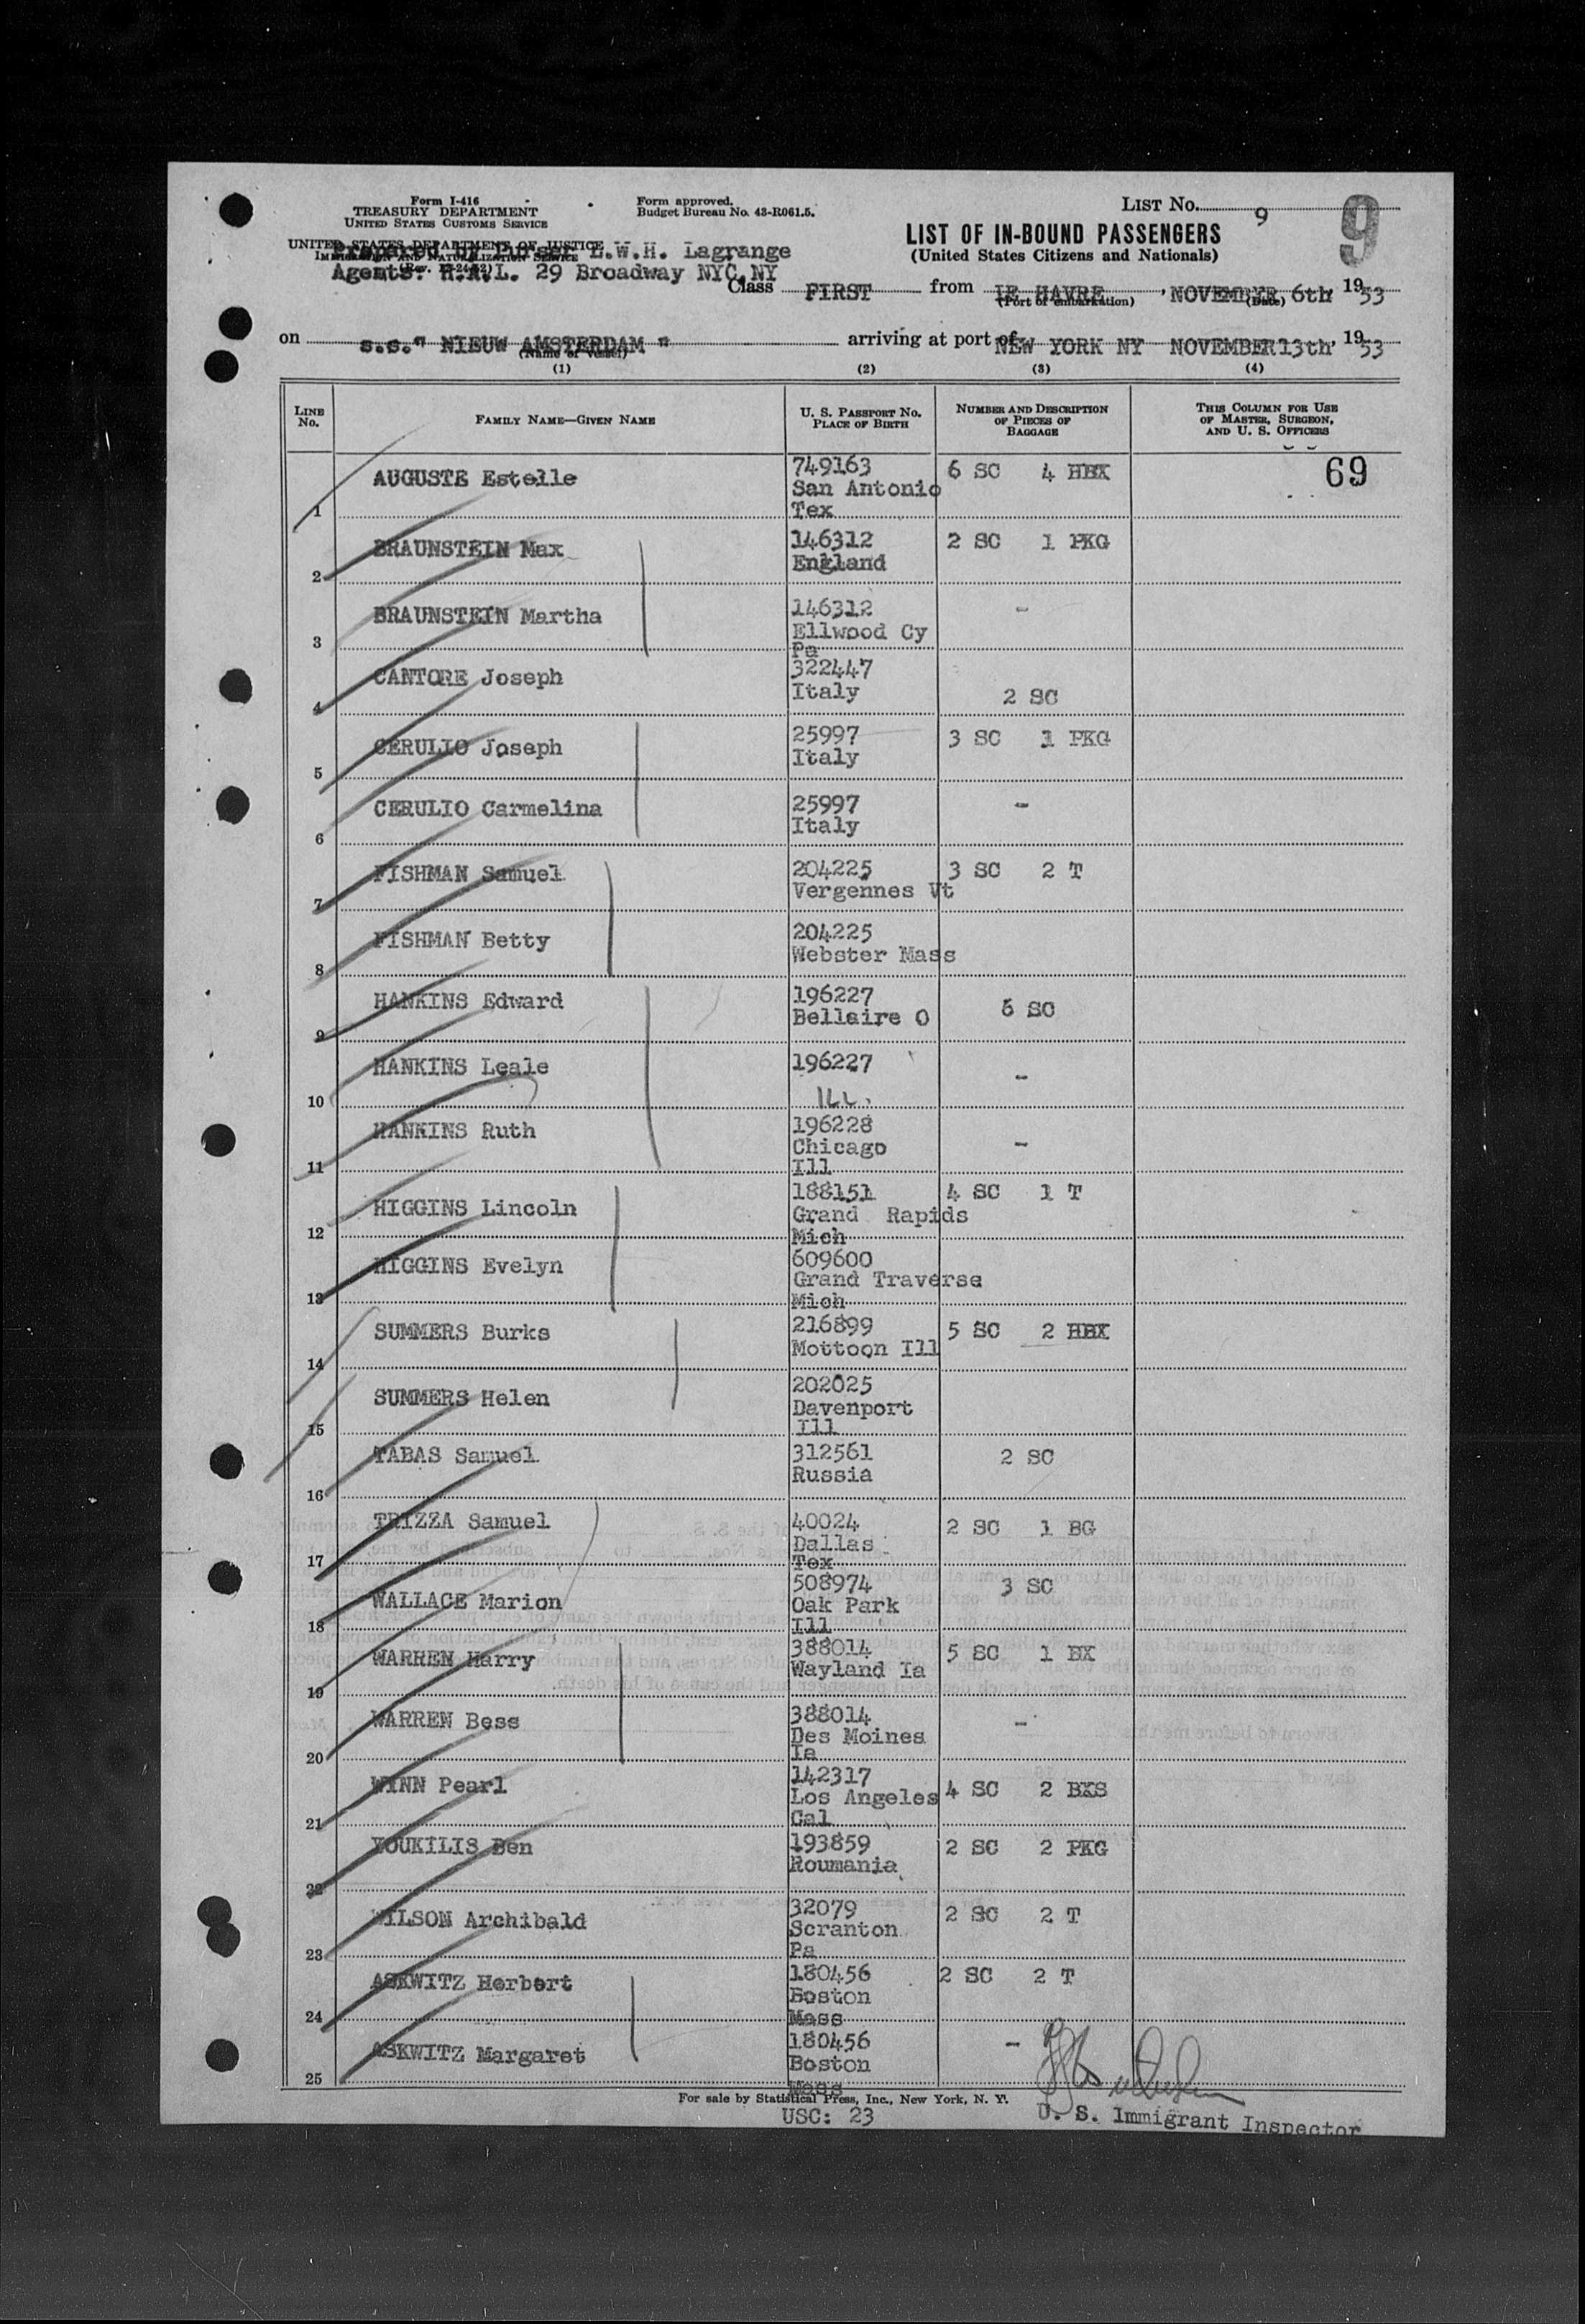 Form I-416
TREASURY DEPARTMENT
UNITED STATES CUSTOMS SERVICE
UNITED STATES DEPARTMENT OF JUSTICE
IMMIGRATION AND NATURALIZATION SERVICE
Prepared by Purser L.W.H. Lagrange
Agents: H.A.L. 29 Broadway NYC.NY
Form approved.
Budget Bureau No. 43-R061.5.
LIST No. 9
9
LIST OF IN-BOUND PASSENGERS
(United States Citizens and Nationals)
Class FIRST from LE HAVRE, NOVEMBER 6th, 1953
(Port of embarkation) (Date)
on s.s." NIEUW AMSTERDAM " arriving at port of NEW YORK NY NOVEMBER 13th, 1953
(Name of vessel)
(1) (2) (3) (4)
LINE No. FAMILY NAME—GIVEN NAME U. S. PASSPORT No. PLACE OF BIRTH NUMBER AND DESCRIPTION OF PIECES OF BAGGAGE THIS COLUMN FOR USE OF MASTER, SURGEON, AND U. S. OFFICERS
69
1 AUGUSTE Estelle 749163 San Antonio Tex 6 SC 4 HBX
2 BRAUNSTEIN Max 146312 England 2 SC 1 PKG
3 BRAUNSTEIN Martha 146312 Ellwood Cy Pa -
4 CANTORE Joseph 322447 Italy 2 SC
5 CERULIO Joseph 25997 Italy 3 SC 1 PKG
6 CERULIO Carmelina 25997 Italy -
7 FISHMAN Samuel 204225 Vergennes Vt 3 SC 2 T
8 FISHMAN Betty 204225 Webster Mass
9 HANKINS Edward 196227 Bellaire O 6 SC
10 HANKINS Leale 196227 ILL. -
11 HANKINS Ruth 196228 Chicago Ill -
12 HIGGINS Lincoln 188151 Grand Rapids Mich 4 SC 1 T
13 HIGGINS Evelyn 609600 Grand Traverse Mich
14 SUMMERS Burks 216899 Mottoon Ill 5 SC 2 HBX
15 SUMMERS Helen 202025 Davenport Ill
16 TABAS Samuel 312561 Russia 2 SC
17 TRIZZA Samuel 40024 Dallas Tex 2 SC 1 BG
18 WALLACE Marion 508974 Oak Park Ill 3 SC
19 WARREN Harry 388014 Wayland Ia 5 SC 1 BX
20 WARREN Bess 388014 Des Moines Ia -
21 WINN Pearl 142317 Los Angeles Cal 4 SC 2 BXS
22 YOUKILIS Ben 193859 Roumania 2 SC 2 PKG
23 WILSON Archibald 32079 Scranton Pa 2 SC 2 T
24 ASKWITZ Herbert 180456 Boston Mass 2 SC 2 T
25 ASKWITZ Margaret 180456 Boston Mass -
For sale by Statistical Press, Inc., New York, N. Y.
USC: 23
U. S. Immigrant Inspector